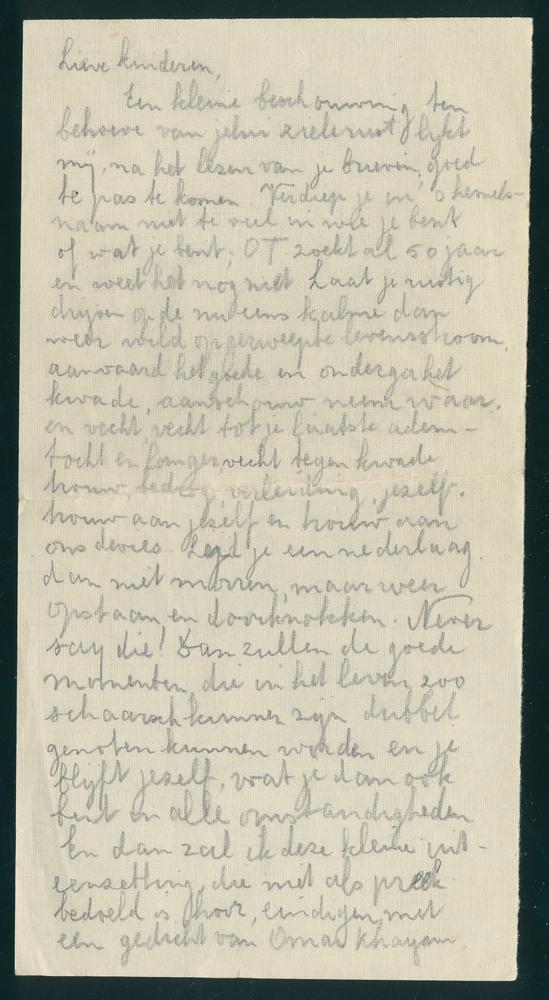 Lieve kinderen,
Een kleine beschouwing ten
behoeve van jelui zielerust lijkt
mij, na het lezen van je brieven, goed
te pas te komen. Verdiep je in 's hemels-
naam niet te veel in wie je bent
of wat je bent; OT zoekt al 50 jaar
en weet het nog niet. Laat je rustig
drijven op de nu eens kalme dan
weer wild opgezweepte levensstroom,
aanvaard het goede en onderga het
kwade, aanschouw neem waar.
en vecht, vecht tot je laatste adem-
tocht en vecht tegen kwade
trouw, bedrog, verleiding, jezelf.
trouw aan jezelf en trouw aan
ons devies. Lijd je een nederlaag
dan niet morren, maar weer
opstaan en doorknokken. Never
say die! Dan zullen de goede
momenten, die in het leven zoo
schaarsch kunnen zijn dubbel
genoten kunnen worden en je
blijft jezelf, wat je dan ook
bent in alle omstandigheden
En dan zal ik deze kleine uit-
eenzetting, die niet als preek
bedoeld is hoor, eindigen met
een gedicht van Omar Khayam.